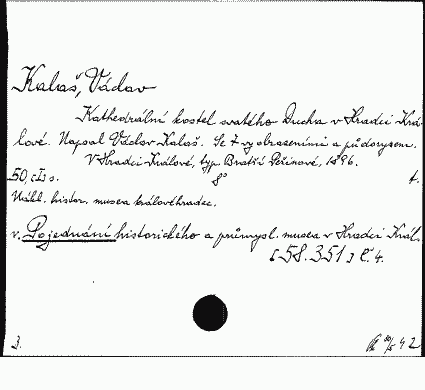 Kalaš, Václav
Kathedrální kostel svatého Ducha v Hradci Krá-
lové. Napsal Václav Kalaš. Se 7 vyobrazeními a půdorysem.
V Hradci Králové, typ. Bratří Peřinové, 1896.
50, čís. 8° t.
Nákl. histor. musea králověhradec.
v. Pojednání historického a průmysl. musea v Hradci Král.
[58.351] č. 4.
3. 42